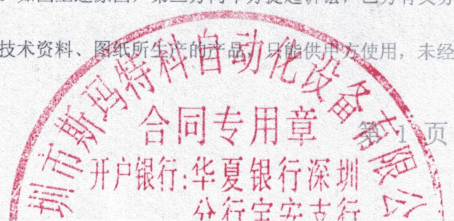 技术资料、图纸所生产的产品，只能供甲方使用，未经
第 1 页
圳市斯玛特科自动化设备有限公
合同专用章
开户银行:华夏银行深圳
分行宝安支行